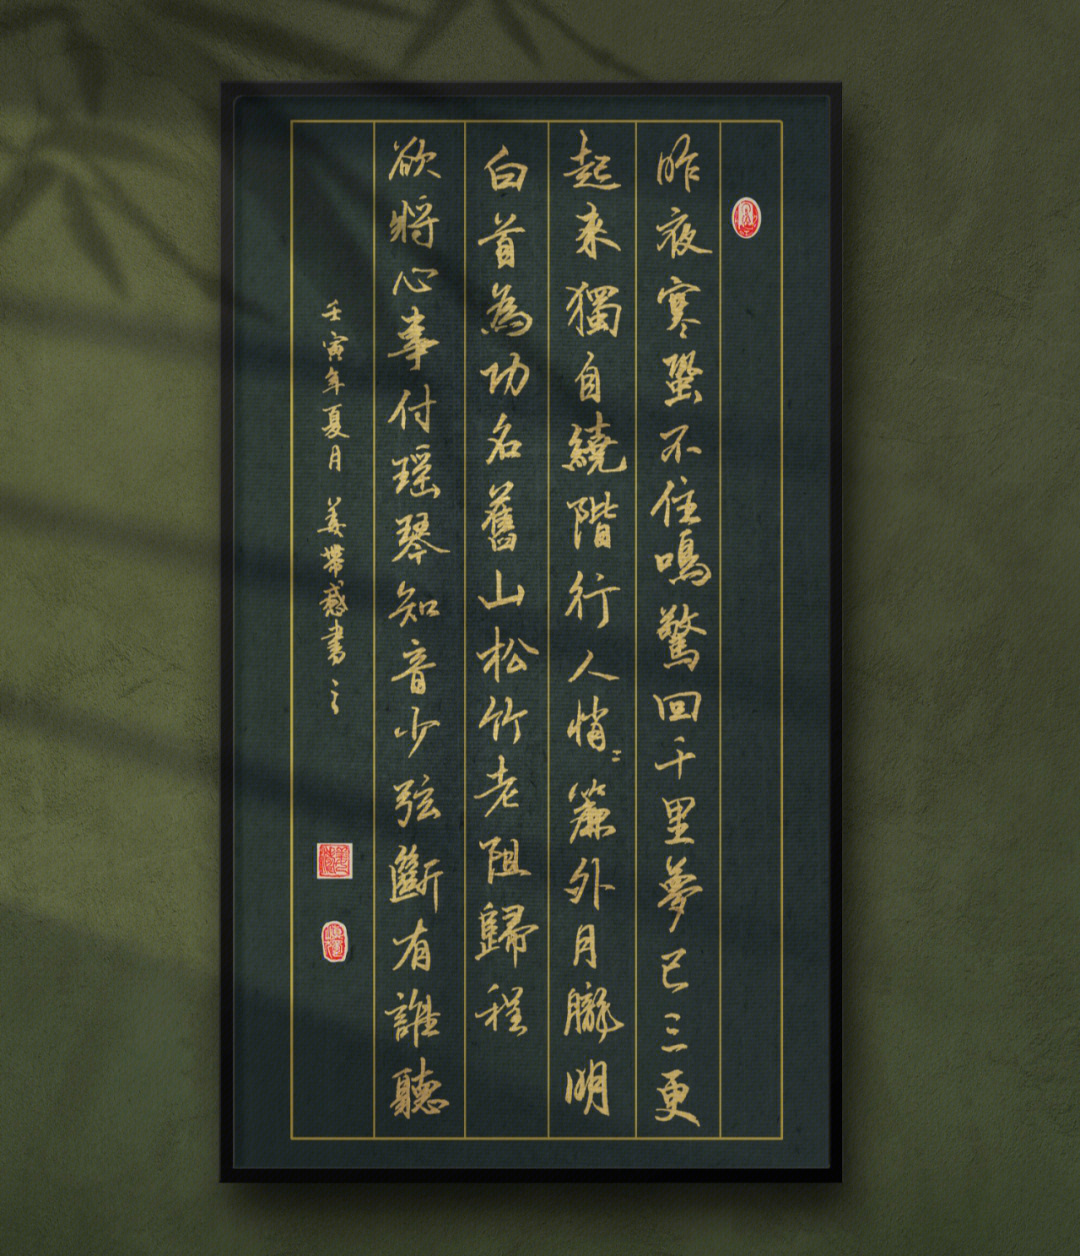 昨夜寒蛩不住鳴驚回千里夢已三更
起來獨自繞階行人悄〻簾外月朧明
白首為功名舊山松竹老阻歸程
欲將心事付瑶琴知音少弦斷有誰聽
壬寅年夏月 姜書之